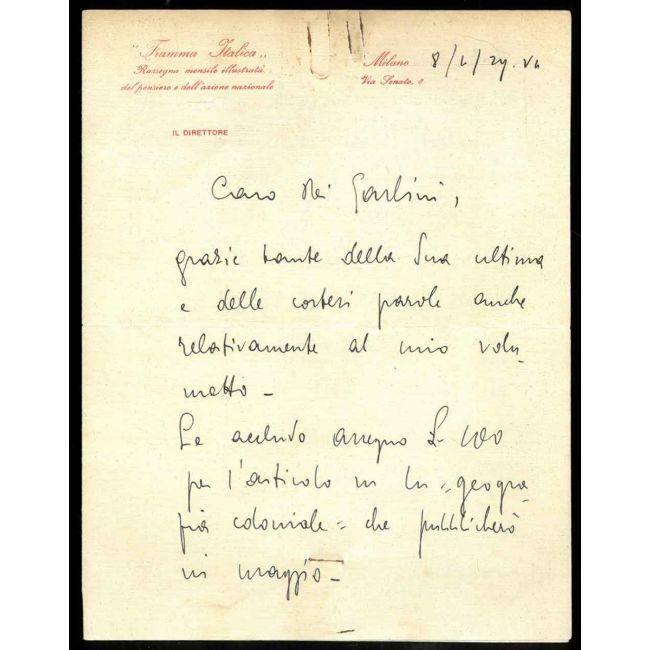 "Fiamma Italica„
Rassegna mensile illustrata
del pensiero e dell'azione nazionale
IL DIRETTORE
Milano 8/4/29. VII
Via Senato, 8
Caro Dei Gaslini,
grazie tante della Sua ultima
e delle cortesi parole anche
relativamente al mio volu-
metto -
Le accludo assegno L 100
per l'articolo in su "geogra-
fia coloniale" che pubblicherò
in maggio -